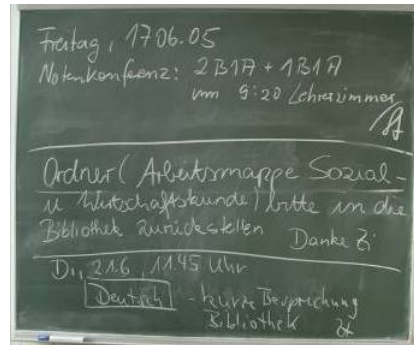 Freitag, 17.06.05
Notenkonferenz: 2B1A + 1B1A
um 9:20 Lehrerzimmer
Ordner (Arbeitsmappe Sozial-
u Wirtschaftskunde) bitte in die
Bibliothek zurückstellen Danke
Di, 21.6, 11.45 Uhr
Deutsch - kurze Besprechung
Bibliothek